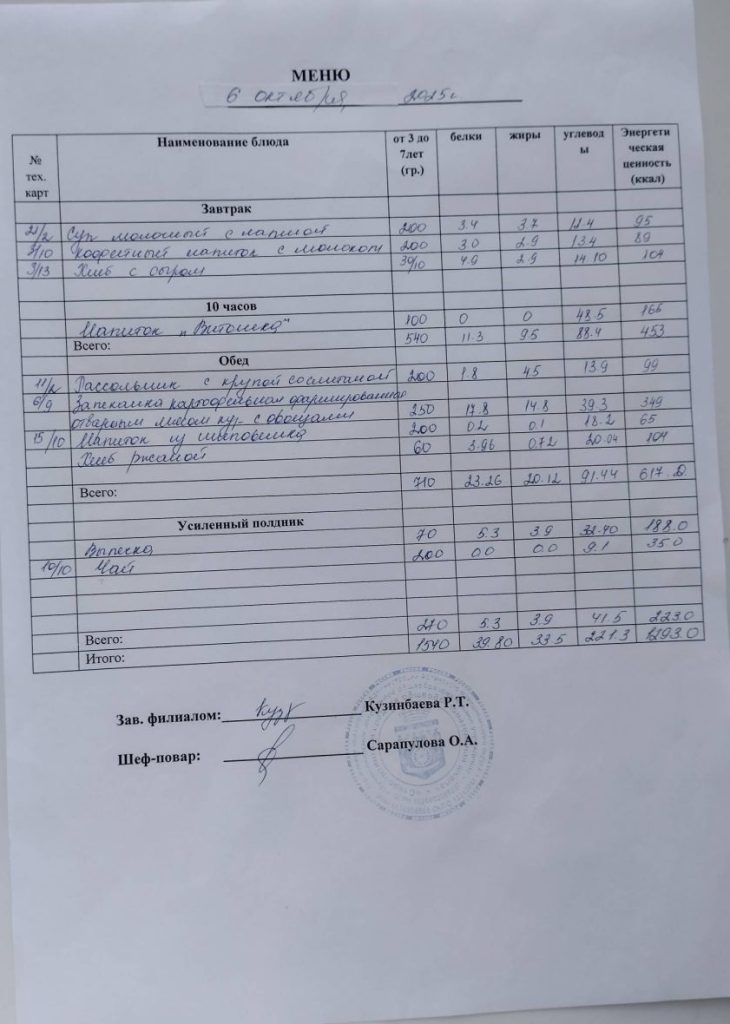 МЕНЮ
6 октября 2025г
№ тех. карт Наименование блюда от 3 до 7лет (гр.) белки жиры углевод ы Энергети ческая ценность (ккал)
Завтрак
21/2 Суп молочный с лапшой 200 3.4 3.7 11.4 95
3/10 Кофейный напиток с молоком 200 3.0 2.9 13.4 89
3/13 Хлеб с сыром 30/10 4.9 2.9 14.10 104
10 часов
Напиток „Витошка" 100 0 0 48.5 166
Всего: 540 11.3 9.5 88.4 453
Обед
11/2 Рассольник с крупой со сметаной 200 1.8 4.5 13.9 99
6/9 Запеканка картофельная фаршированная
отварным мясом кур. с овощами 250 17.8 14.8 39.3 349
15/10 Напиток из шиповника 200 0.2 0.1 18.2 65
Хлеб ржаной 60 3.96 0.72 20.04 104
Всего: 710 23.26 20.12 91.44 617.0
Усиленный полдник
Выпечка 70 5.3 3.9 32.40 188.0
10/10 Чай 200 0.0 0.0 9.1 35.0
Всего: 270 5.3 3.9 41.5 223.0
Итого: 1540 39.80 33.5 221.3 1293.0
Зав. филиалом: Кузинбаева Р.Т.
Шеф-повар: Сарапулова О.А.